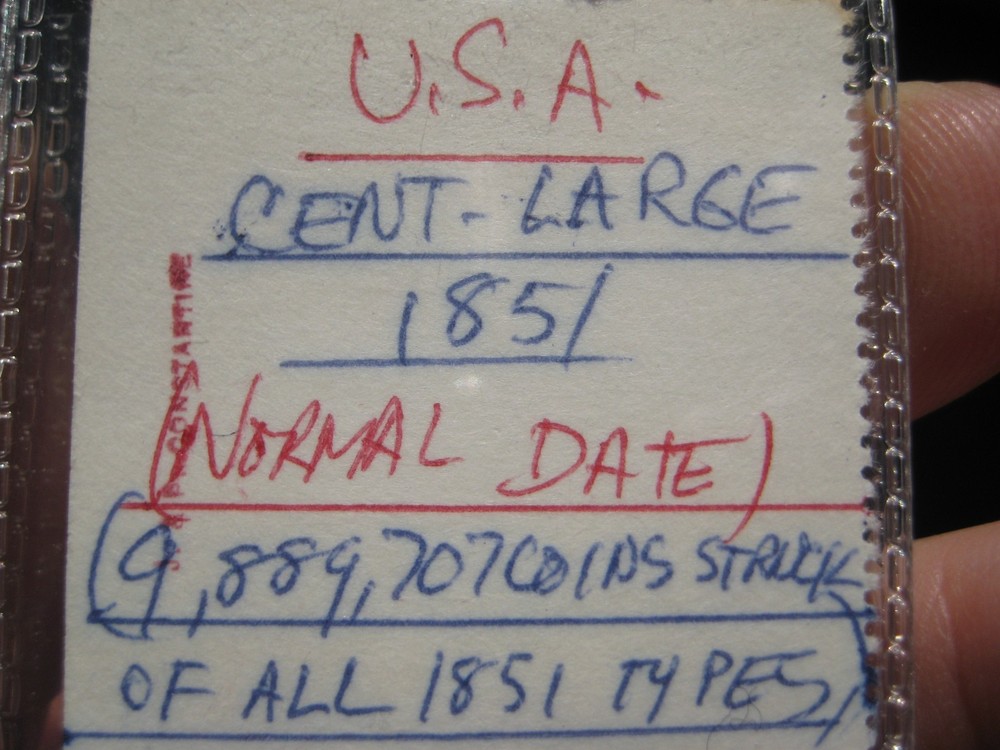 U.S.A.
CENT-LARGE
1851
(NORMAL DATE)
(9,889,707 COINS STRUCK
OF ALL 1851 TYPES)
CONSTANTINE